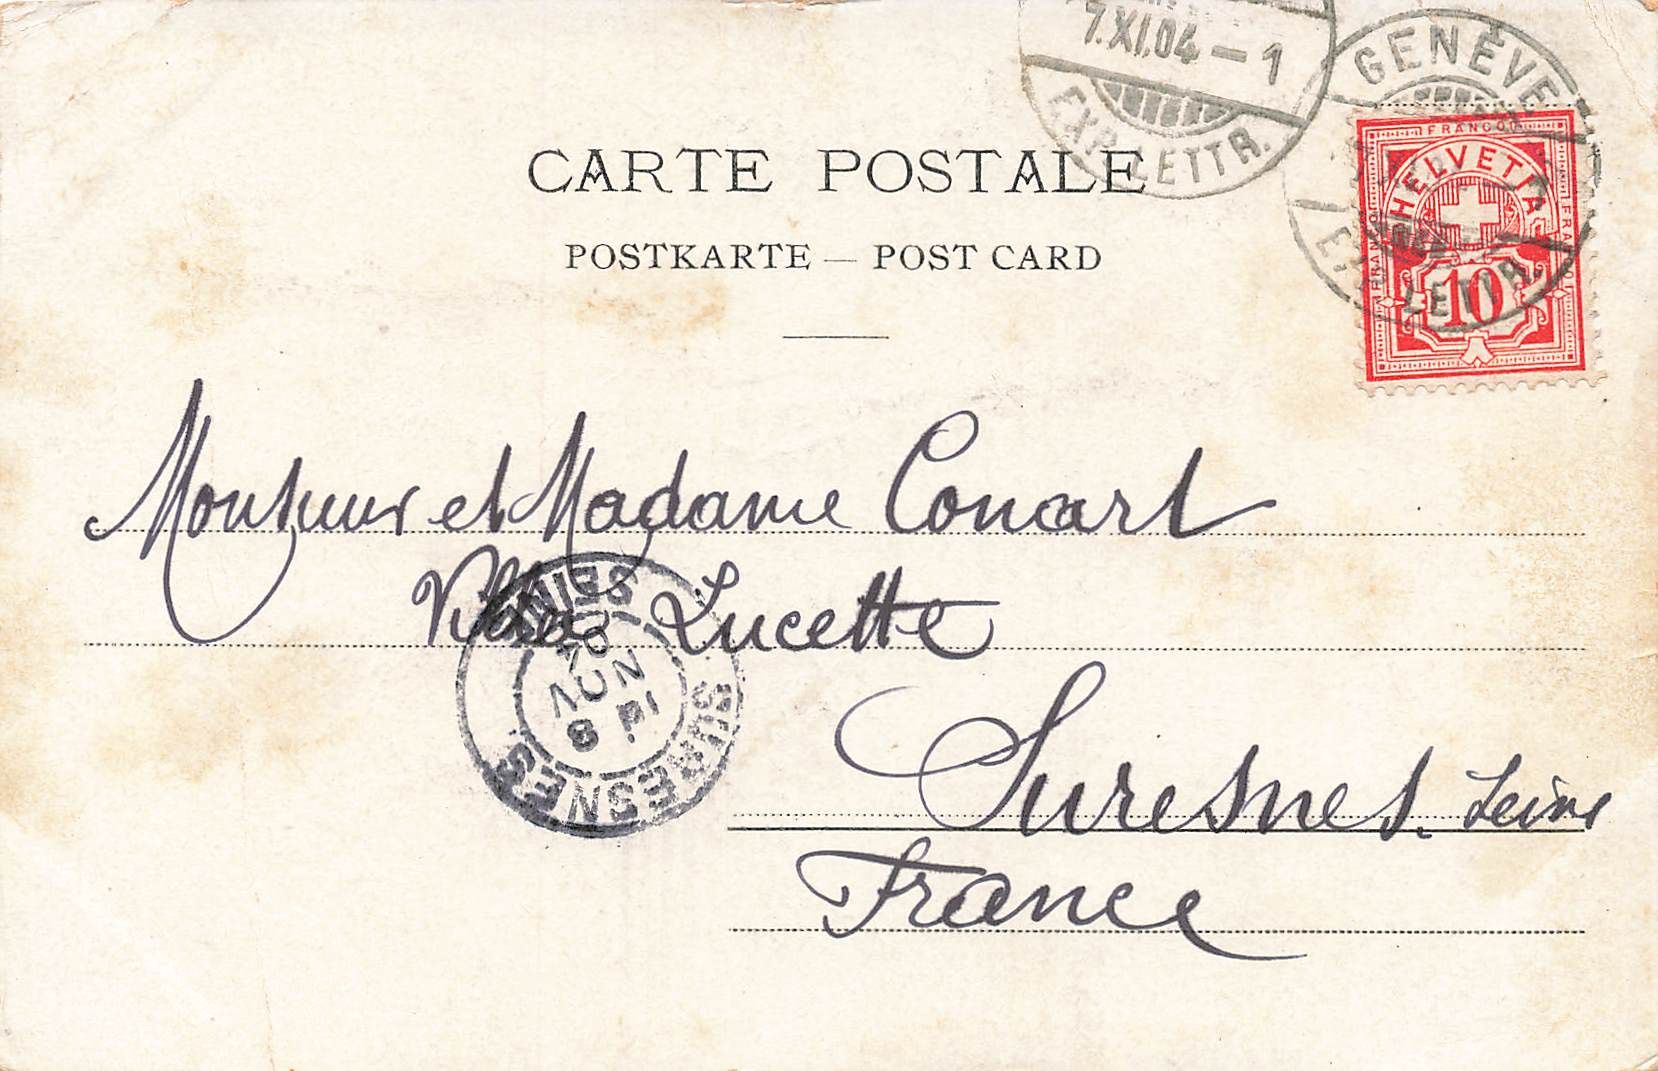 7.XI.04-1
EXP.LETTR.
GENÈVE
EXP.LETTR.
FRANCO
FRANCO
FRANCO
HELVETIA
10
CARTE POSTALE
POSTKARTE — POST CARD
Monsieur et Madame Conart
Villa Lucette
Suresnes. Seine
France
SURESNES
SEINE
8
NOV
04